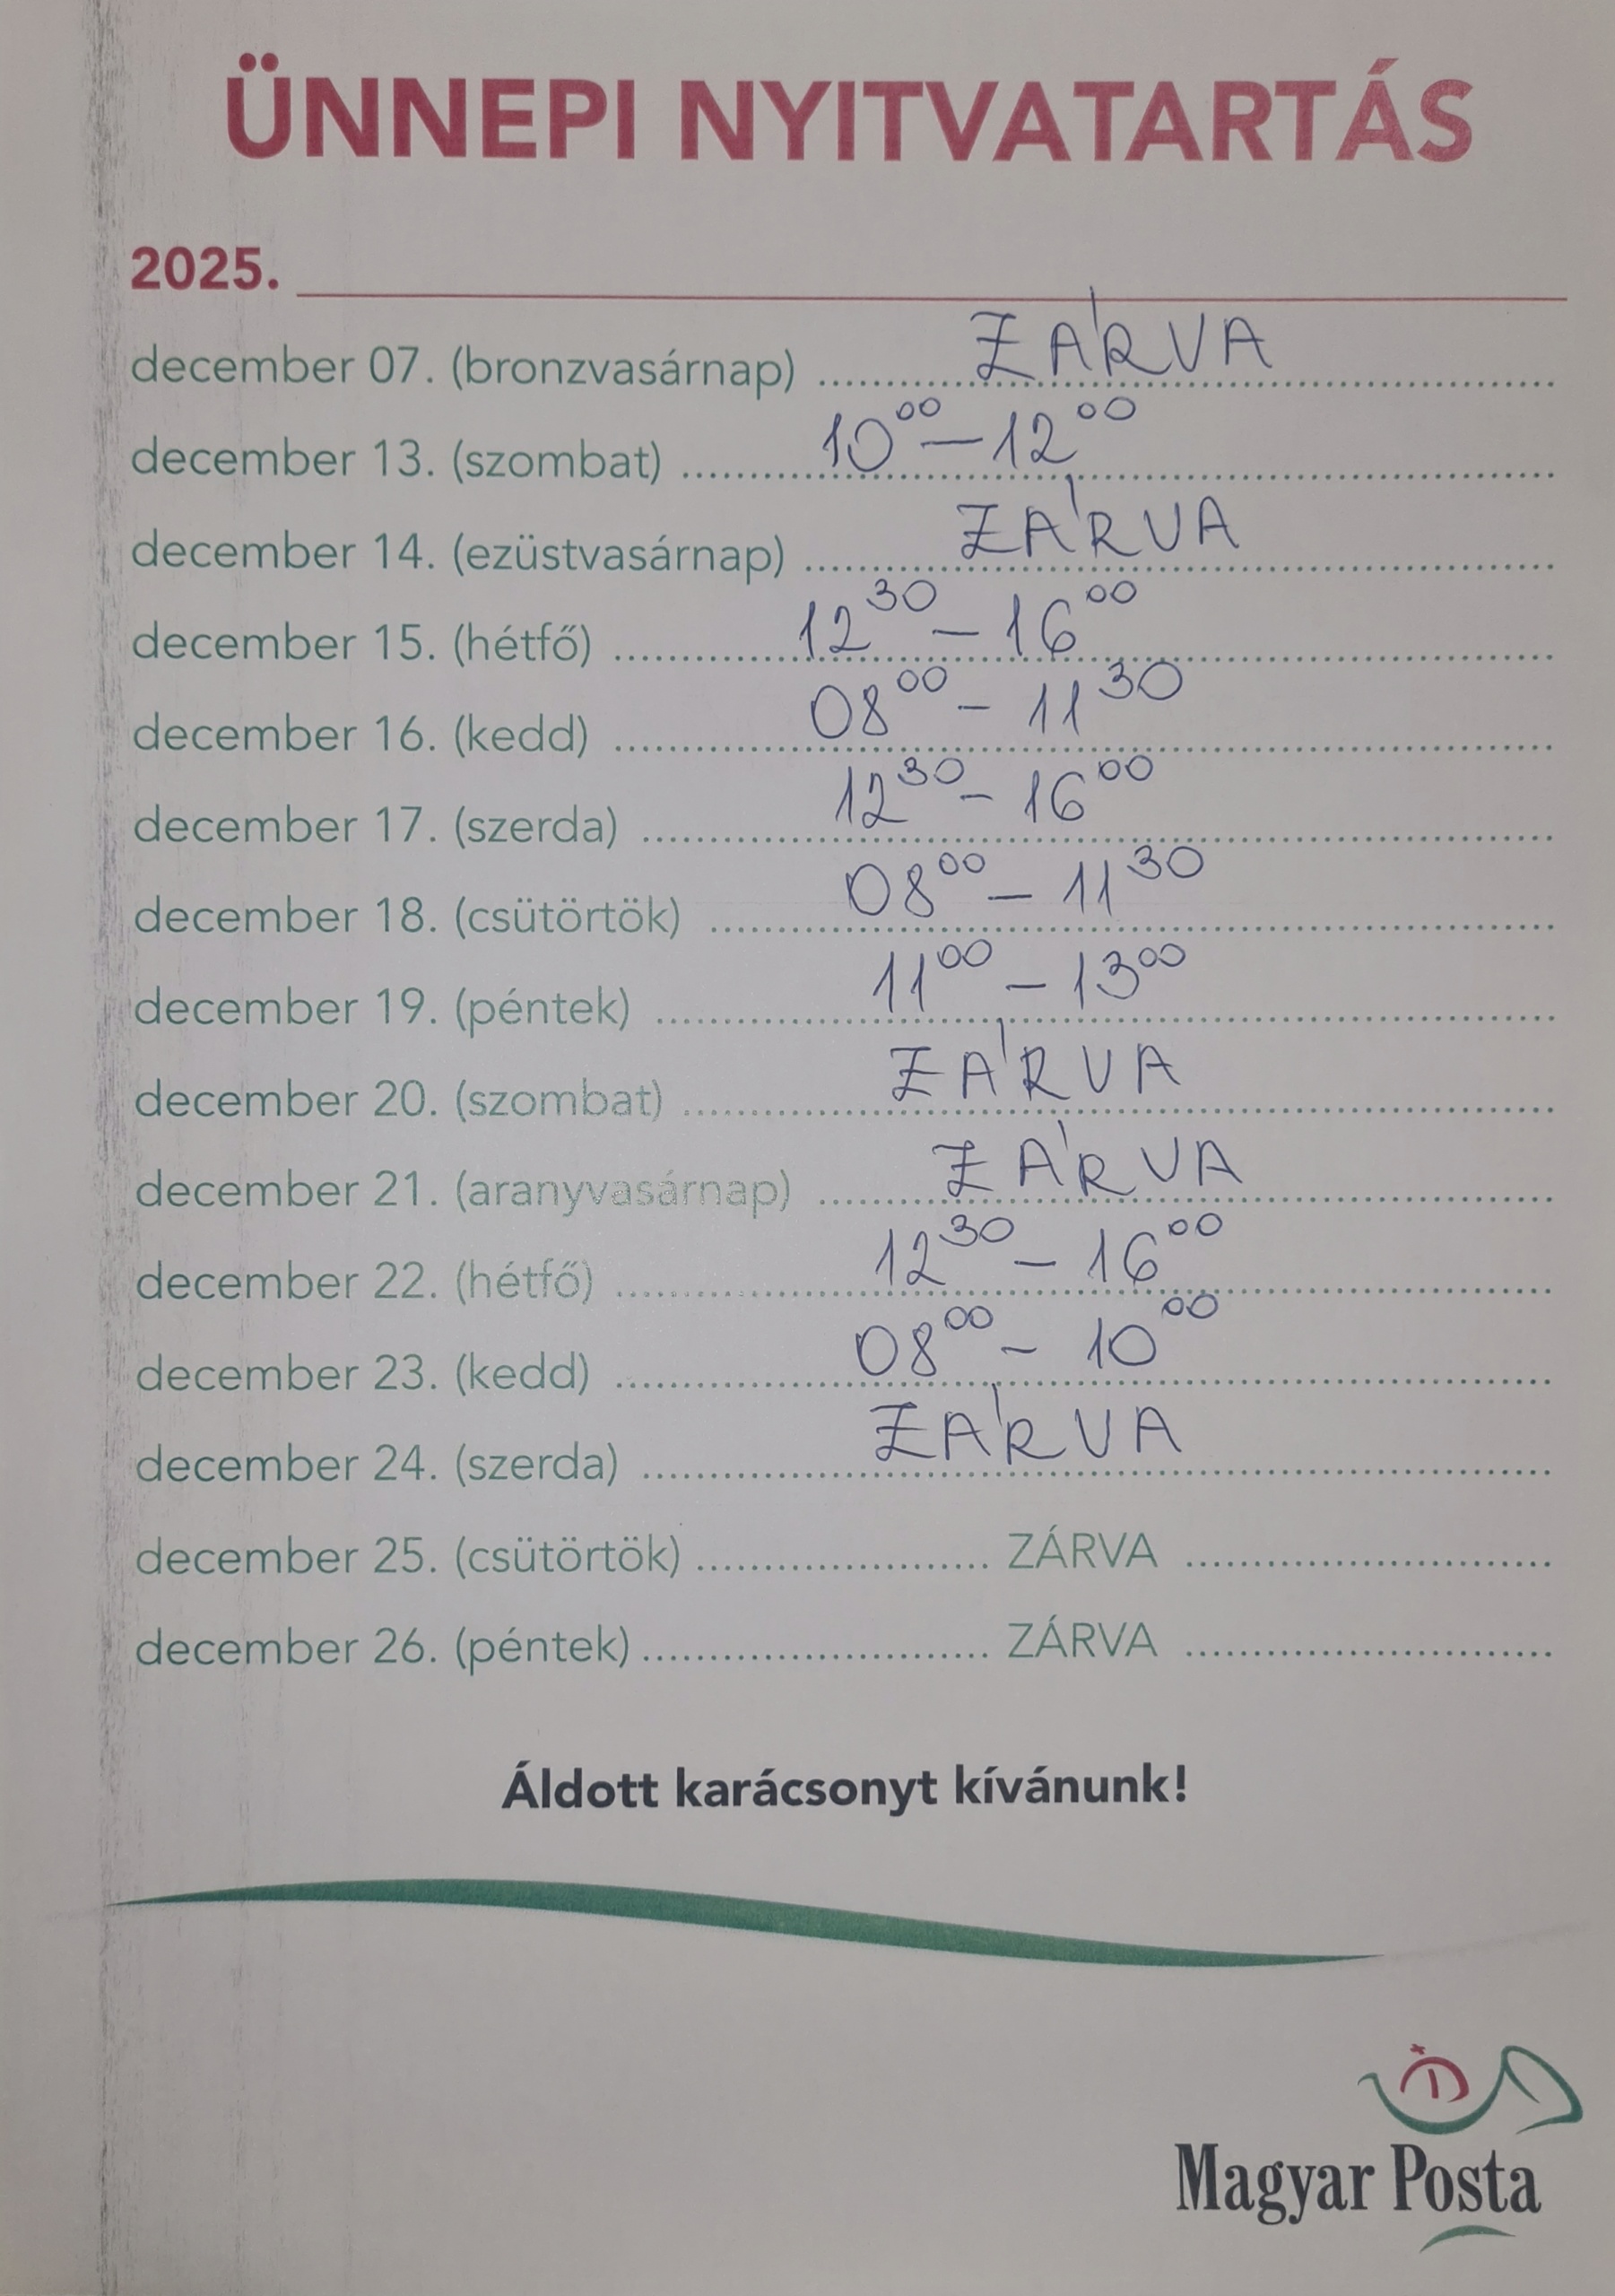 ÜNNEPI NYITVATARTÁS
2025.
december 07. (bronzvasárnap) ZÁRVA
december 13. (szombat) 10⁰⁰ – 12⁰⁰
december 14. (ezüstvasárnap) ZÁRVA
december 15. (hétfő) 12³⁰ – 16⁰⁰
december 16. (kedd) 08⁰⁰ – 11³⁰
december 17. (szerda) 12³⁰ – 16⁰⁰
december 18. (csütörtök) 08⁰⁰ – 11³⁰
december 19. (péntek) 11⁰⁰ – 13⁰⁰
december 20. (szombat) ZÁRVA
december 21. (aranyvasárnap) ZÁRVA
december 22. (hétfő) 12³⁰ – 16⁰⁰
december 23. (kedd) 08⁰⁰ – 10⁰⁰
december 24. (szerda) ZÁRVA
december 25. (csütörtök) ZÁRVA
december 26. (péntek) ZÁRVA
Áldott karácsonyt kívánunk!
Magyar Posta